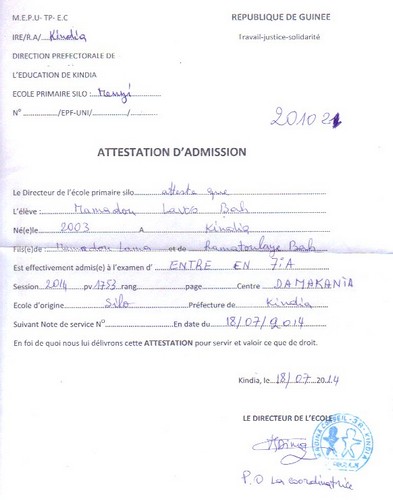 M.E.P.U- TP- E.C
REPUBLIQUE DE GUINEE
IRE/R.A/ Kindia
Travail-justice-solidarité
DIRECTION PREFECTORALE DE
L'EDUCATION DE KINDIA
ECOLE PRIMAIRE SILO :
N° ............/EPF-UNI/............/............
ATTESTATION D'ADMISSION
Le Directeur de l'école primaire silo.... atteste que
L'élève : Mamadou Bah
Né(e)le 2003 A Kindia
Fils(e)de Mamadou Lama et de Ramatoulaye Bah
Est effectivement admis(e) à l'examen d' ENTRE EN 7èA
Session 2014 pv 1753 rang............page............Centre DAMAKANIA
Ecole d'origine Silo Préfecture de Kindia
Suivant Note de service N°............En date du 18/07/2014
En foi de quoi nous lui délivrons cette ATTESTATION pour servir et valoir ce que de droit.
Kindia, le 18/07 2014
LE DIRECTEUR DE L'ECOLE
P.O La coordinatrice